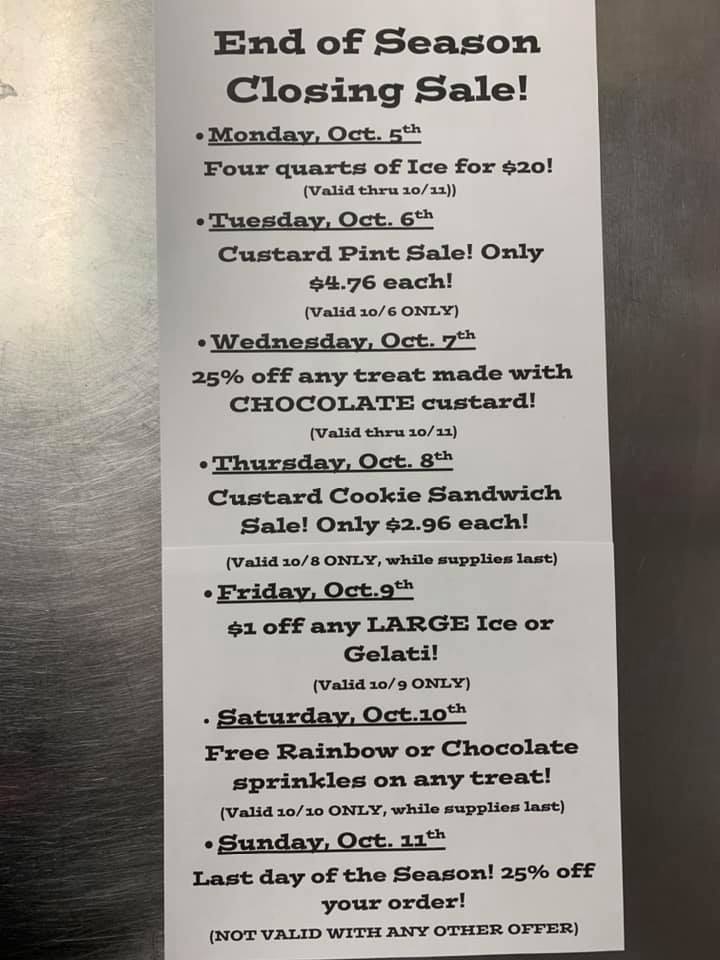 End of Season
Closing Sale!
• Monday, Oct. 5th
Four quarts of Ice for $20!
(Valid thru 10/11))
• Tuesday, Oct. 6th
Custard Pint Sale! Only
$4.76 each!
(Valid 10/6 ONLY)
• Wednesday, Oct. 7th
25% off any treat made with
CHOCOLATE custard!
(Valid thru 10/11)
• Thursday, Oct. 8th
Custard Cookie Sandwich
Sale! Only $2.96 each!
(Valid 10/8 ONLY, while supplies last)
• Friday, Oct.9th
$1 off any LARGE Ice or
Gelati!
(Valid 10/9 ONLY)
• Saturday, Oct.10th
Free Rainbow or Chocolate
sprinkles on any treat!
(Valid 10/10 ONLY, while supplies last)
• Sunday, Oct. 11th
Last day of the Season! 25% off
your order!
(NOT VALID WITH ANY OTHER OFFER)